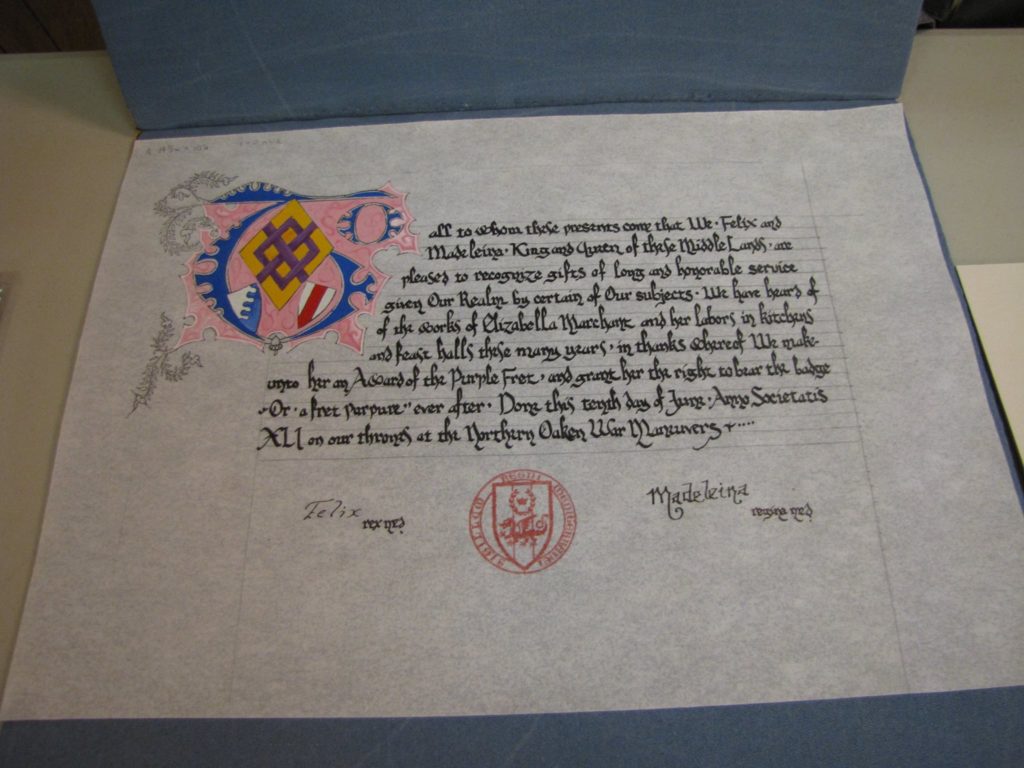 all to whom these presents come that We · Felix and
Madeleina · King and Queen of these Middle Lands · are
pleased to recognize gifts of long and honorable service
given Our Realm by certain of Our subjects · We have heard of
of the works of Elizabella Marchant and her labors in kitchens
and feast halls these many years · in thanks whereof We make
unto her an Award of the Purple Fret · and grant her the right to bear the badge
"Or · a fret purpure" ever after · Done this tenth day of June · Anno Societatis
XLI on our thrones at the Northern Oaken War Maneuvers
Felix
rex mid
Madeleina
regina mid